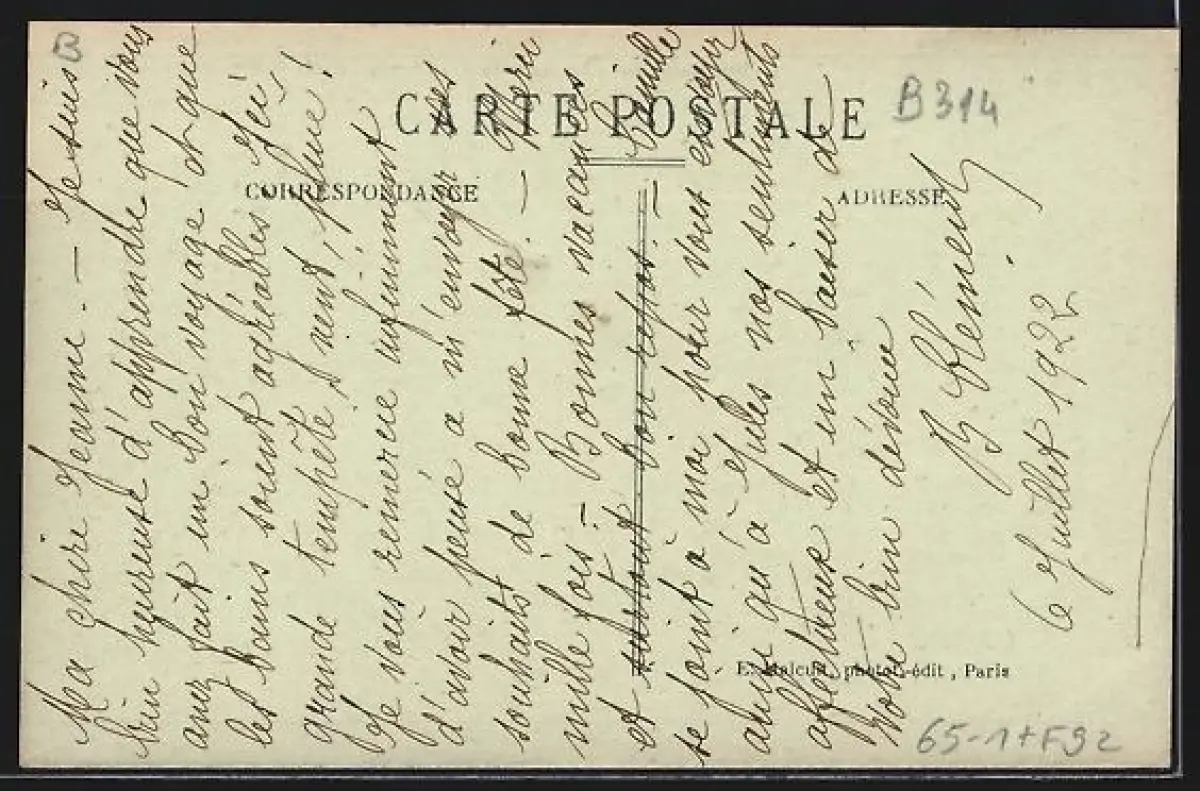 CARTE POSTALE
CORRESPONDANCE
ADRESSE
B
B314
Ma chère Jeanne. — Je suis
bien heureuse d'apprendre que vous
avez fait un bon voyage et que
les bains soient agréables. Ici
grande tempête, vent, pluie!
Je vous remercie infiniment
d'avoir pensé a m'envoyer ses
souhaits de bonne fête. — Merci
mille fois. — Bonnes vacances
et surtout bon repos. — Camille
se joint a moi pour vous envoyer
ainsi qu'à Jules nos sentiments
affectueux et un baiser de
votre bien dévouée
B Clément
6 Juillet 1922
E. Malcuit, phot.-édit, Paris
65-1+F92